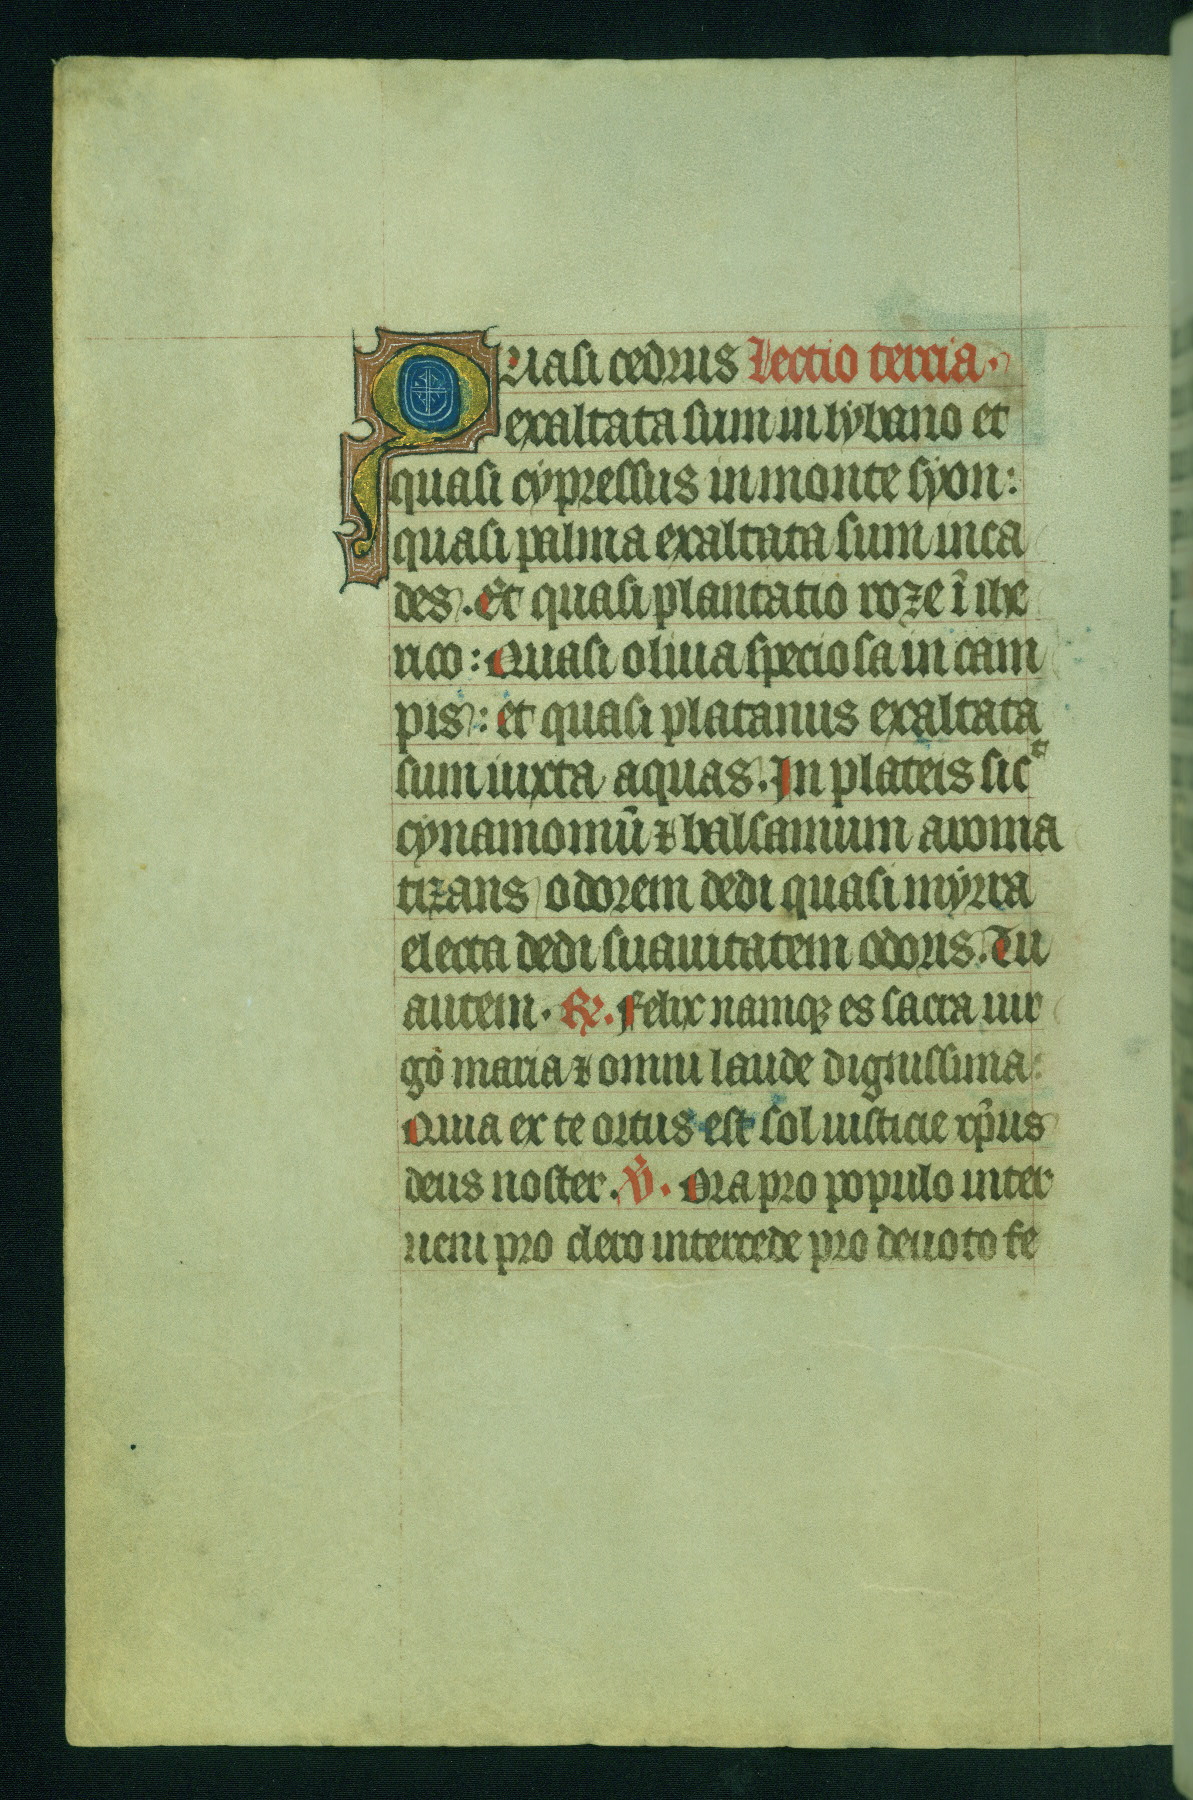 Quasi cedrus Lectio tercia.
exaltata sum in lybano et
quasi cypressus in monte syon:
quasi palma exaltata sum in ca
des. Et quasi plantatio roze ī ihe
rico: Quasi oliua speciosa in cam
pis: et quasi platanus exaltata
sum iuxta aquas. In plateis sicᵗ
cynamomū ⁊ balsamum aroma
tizans odorem dedi quasi myrra
electa dedi suauitatem odoris. Tu
autem. ℟. Felix namqꝫ es sacra uir
go maria ⁊ omni laude dignissima:
Quia ex te ortus est sol iusticie xp̄us
deus noster. ℣. Ora pro populo inter
ueni pro clero intercede pro deuoto fe